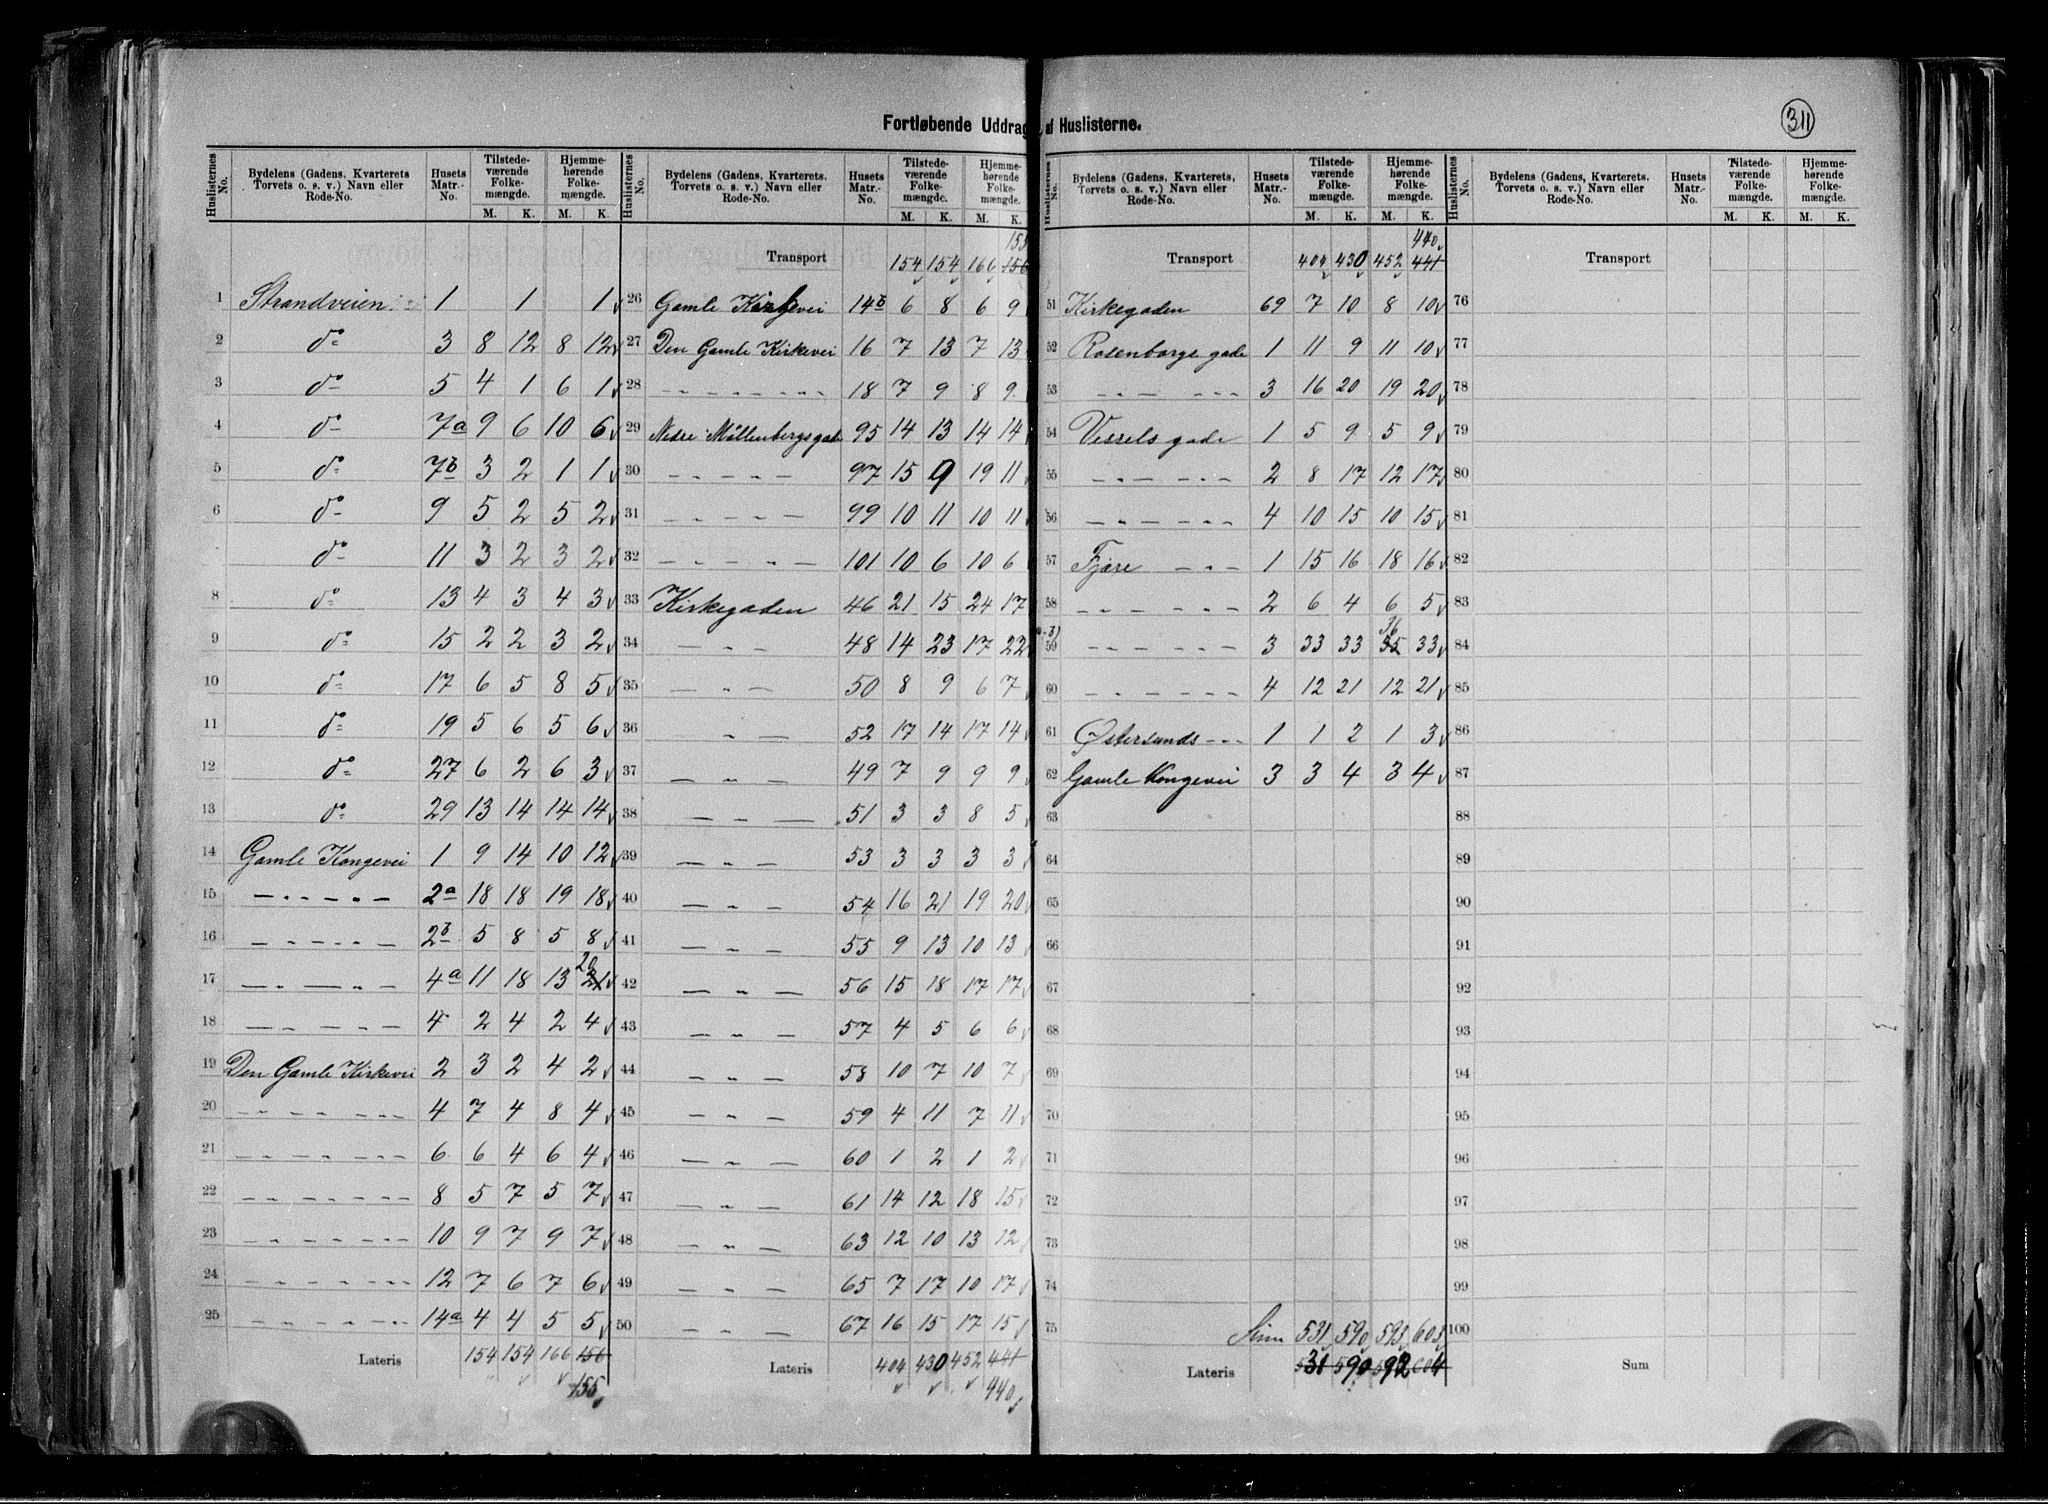 311
Fortløbende Uddrag af Huslisterne.
Huslisternes No. Bydelens (Gadens, Kvarterets, Torvets o. s. v.) Navn eller Rode-No. Husets Matr.-No. Tilstedeværende Folkemængde. M. K. Hjemmehørende Folkemængde. M. K.
1 Strandveien 1 1 1
2 do 3 8 12 8 12
3 do 5 4 1 6 1
4 do 7a 9 6 10 6
5 do 7b 3 2 1 1
6 do 9 5 2 5 2
do 11 3 2 3 2
8 do 13 4 3 4 3
9 do 15 2 2 3 2
10 do 17 6 5 8 5
11 do 19 5 6 5 6
12 do 27 6 2 6 3
13 do 29 13 14 14 14
14 Gamle Kongevei 1 9 14 10 12
15 – „ – „ – 2a 18 18 19 18
16 – „ – „ – 2b 5 8 5 8
17 – „ – „ – 4a 11 18 13 21 20
18 – „ – „ – 4 2 4 2 4
19 Den Gamle Kirkevei 2 3 2 4 2
20 – „ – „ – 4 7 4 8 4
21 – „ – „ – 6 6 4 6 4
22 – „ – „ – 8 5 7 5 7
23 – „ – „ – 10 9 7 9 7
24 – „ – „ – 12 7 6 7 6
25 – „ – „ – 14a 4 4 5 5
Lateris 154 154 166 156
155
Huslisternes No. Bydelens (Gadens, Kvarterets, Torvets o. s. v.) Navn eller Rode-No. Husets Matr.-No. Tilstedeværende Folkemængde. M. K. Hjemmehørende Folkemængde. M. K.
155
Transport 154 154 166 156
26 Gamle 14b 6 8 6 9
27 Den Gamle Kirkevei 16 7 13 7 13
28 – – – – 18 7 9 8 9
29 Nedre Møllenbergsgade 95 14 13 14 14
30 – – „ – – 97 15 9 19 11
31 – – „ – – 99 10 11 10 11
32 – – „ – – 101 10 6 10 6
33 Kirkegaden 46 21 15 24 17
34 – „ – 48 14 23 17 22
35 – „ – 50 8 9 6 7
36 – „ – 52 17 14 17 14
37 – „ – 49 7 9 9 9
38 – „ – 51 3 3 8 5
39 – „ – 53 3 3 3 3
40 – „ – 54 16 21 19 20
41 – „ – 55 9 13 10 13
42 – „ – 56 15 18 17 17
43 – „ – 57 4 5 6 6
44 – „ – 58 10 7 10 7
45 – „ – 59 4 11 7 11
46 – „ – 60 1 2 1 2
47 – „ – 61 14 12 18 15
48 – „ – 63 12 10 13 12
49 – „ – 65 7 17 10 17
50 – „ – 67 16 15 17 15
Lateris 404 430 452 441
440
Huslisternes No. Bydelens (Gadens, Kvarterets, Torvets o. s. v.) Navn eller Rode-No. Husets Matr.-No. Tilstedeværende Folkemængde. M. K. Hjemmehørende Folkemængde. M. K.
440
Transport 404 430 452 441
51 Kirkegaden 69 7 10 8 10
52 Rosenborgs gade 1 11 9 11 10
53 – „ – – „ – 3 16 20 19 20
54 Vessels gade 1 5 9 5 9
55 – „ – – „ – 2 8 17 12 17
56 – „ – – „ – 4 10 15 10 15
57 Fjære – „ – 1 15 16 18 16
58 – „ – – „ – 2 6 4 6 5
59 – „ – – „ – 3 33 33 35 36 33
60 – „ – – „ – 4 12 21 12 21
61 Østersunds – „ – 1 1 2 1 3
62 Gamle Kongevei 3 3 4 3 4
63
64
65
66
67
68
69
70
71
72
73
74
75
Sum 531 590 593 603
Lateris 531 590 592 604
Huslisternes No. Bydelens (Gadens, Kvarterets, Torvets o. s. v.) Navn eller Rode-No. Husets Matr.-No. Tilstedeværende Folkemængde. M. K. Hjemmehørende Folkemængde. M. K.
Transport
76
77
78
79
80
81
82
83
84
85
86
87
88
89
90
91
92
93
94
95
96
97
98
99
100
Sum